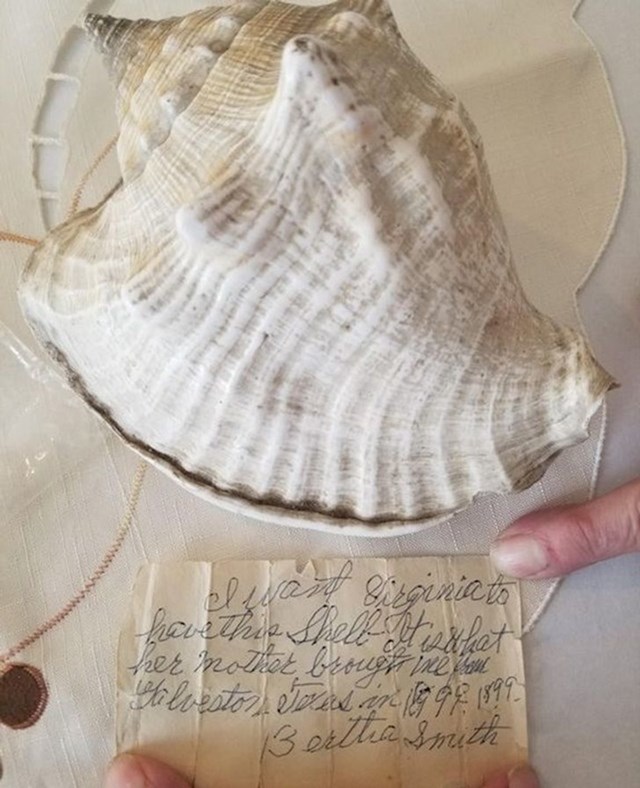 I want Virginia to
have this Shell It is what
her mother brought me from
Galveston Texas in 1899 1899
Bertha Smith